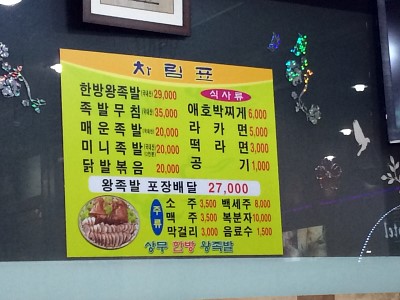 차림표
한방왕족발(국내산) 29,000
족발무침(국내산) 35,000
매운족발(국내산) 20,000
미니족발 20,000
닭발볶음 20,000
식사류
애호박찌게 6,000
라카면 5,000
떡라면 3,000
공기 1,000
왕족발 포장배달 27,000
주류
소주 3,500 백세주 8,000
맥주 3,500 복분자 10,000
막걸리 3,000 음료수 1,500
상무 한방 왕족발